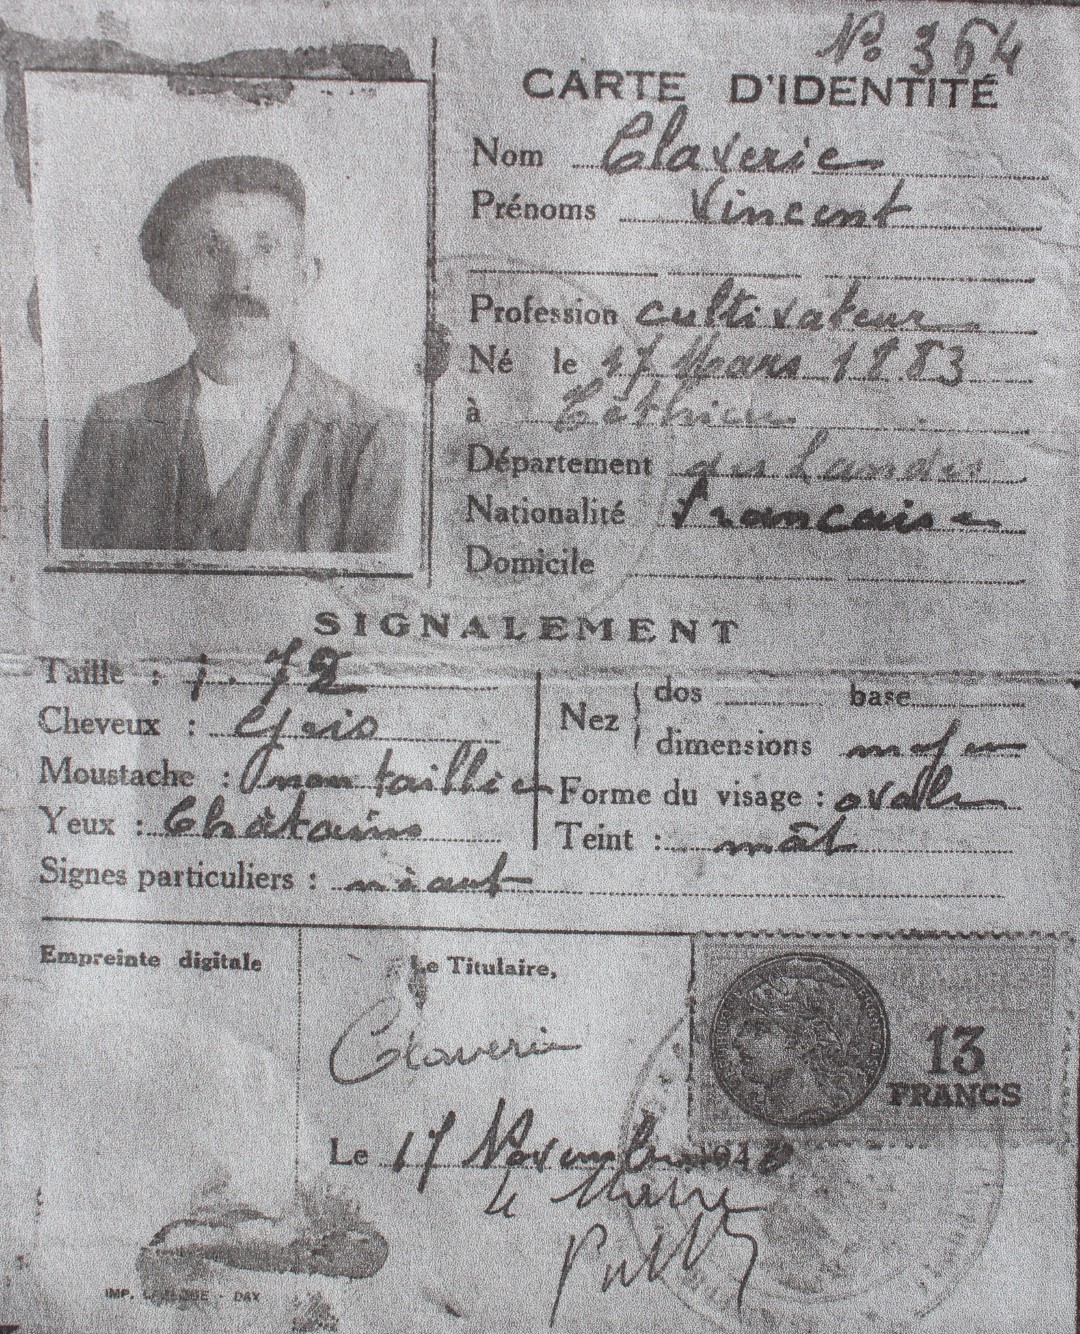 No 364
CARTE D'IDENTITÉ
Nom Claverie
Prénoms Vincent
Profession cultivateur
Né le 17 Mars 1883
à Téthieu
Département des Landes
Nationalité française
Domicile
SIGNALEMENT
Taille : 1.72
Cheveux : Gris
Moustache : non taillée
Yeux : Châtains
Nez dos base
dimensions moyen
Forme du visage : ovale
Teint : mât
Signes particuliers : néant
Empreinte digitale
Le Titulaire,
Claverie
13
FRANCS
Le 17 Novembre 1940
le Maire
IMP. - DAX